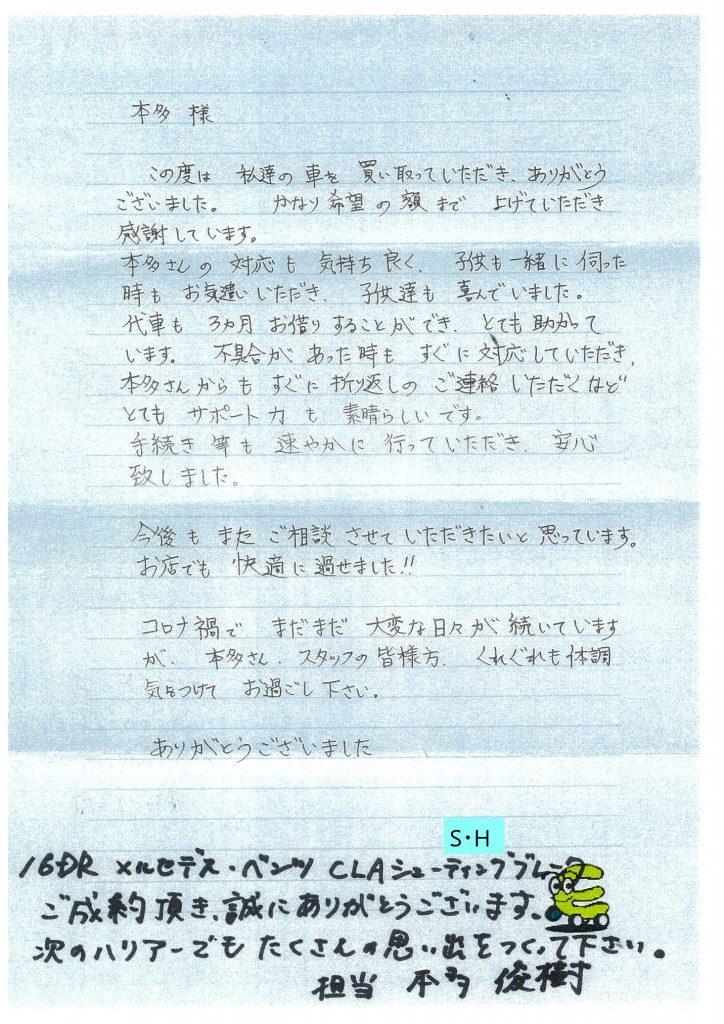 本多 様
この度は 私達の 車を 買い取っていただき、ありがとう
ございました。 かなり希望の額まで 上げていただき
感謝しています。
本多さんの 対応も 気持ち良く、子供も一緒に伺った
時も お気遣いいただき、子供達も 喜んでいました。
代車も 3ヵ月 お借りすることができ、とても助かって
います。 不具合が あった時も すぐに対応していただき、
本多さんからも すぐに 折り返しの ご連絡いただくなど
とても サポート力も 素晴らしいです。
手続き等も 速やかに 行っていただき、安心
致しました。
今後も また ご相談させていただきたいと思っています。
お店でも 快適に過せました!!
コロナ禍で まだまだ 大変な日々が 続いています
が、本多さん、スタッフの皆様方、くれぐれも体調
気をつけて お過ごし下さい。
ありがとうございました
S・H
16年 メルセデス・ベンツ CLAシューティングブレーク
ご成約頂き、誠にありがとうございます。
次のハリアーでも たくさんの思い出をつくって下さい。
担当 本多 俊樹